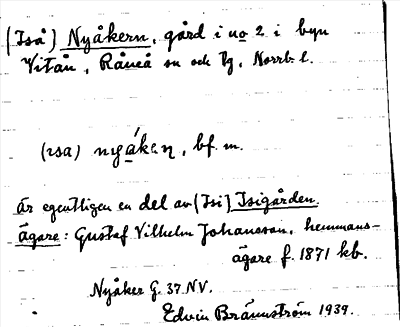 (Iså) Nyåkern, gård i no 2 i byn
Vitån, Råneå sn och tg, Norrb. l.
(ısa) nyåken, bf. m.
är egentligen en del av (Isi) Isigården.
ägare: Gustaf Vilhelm Johansson, hemmans-
ägare f. 1871 kb.
Nyåker G. 37. NV.
Edvin Brännström 1939.